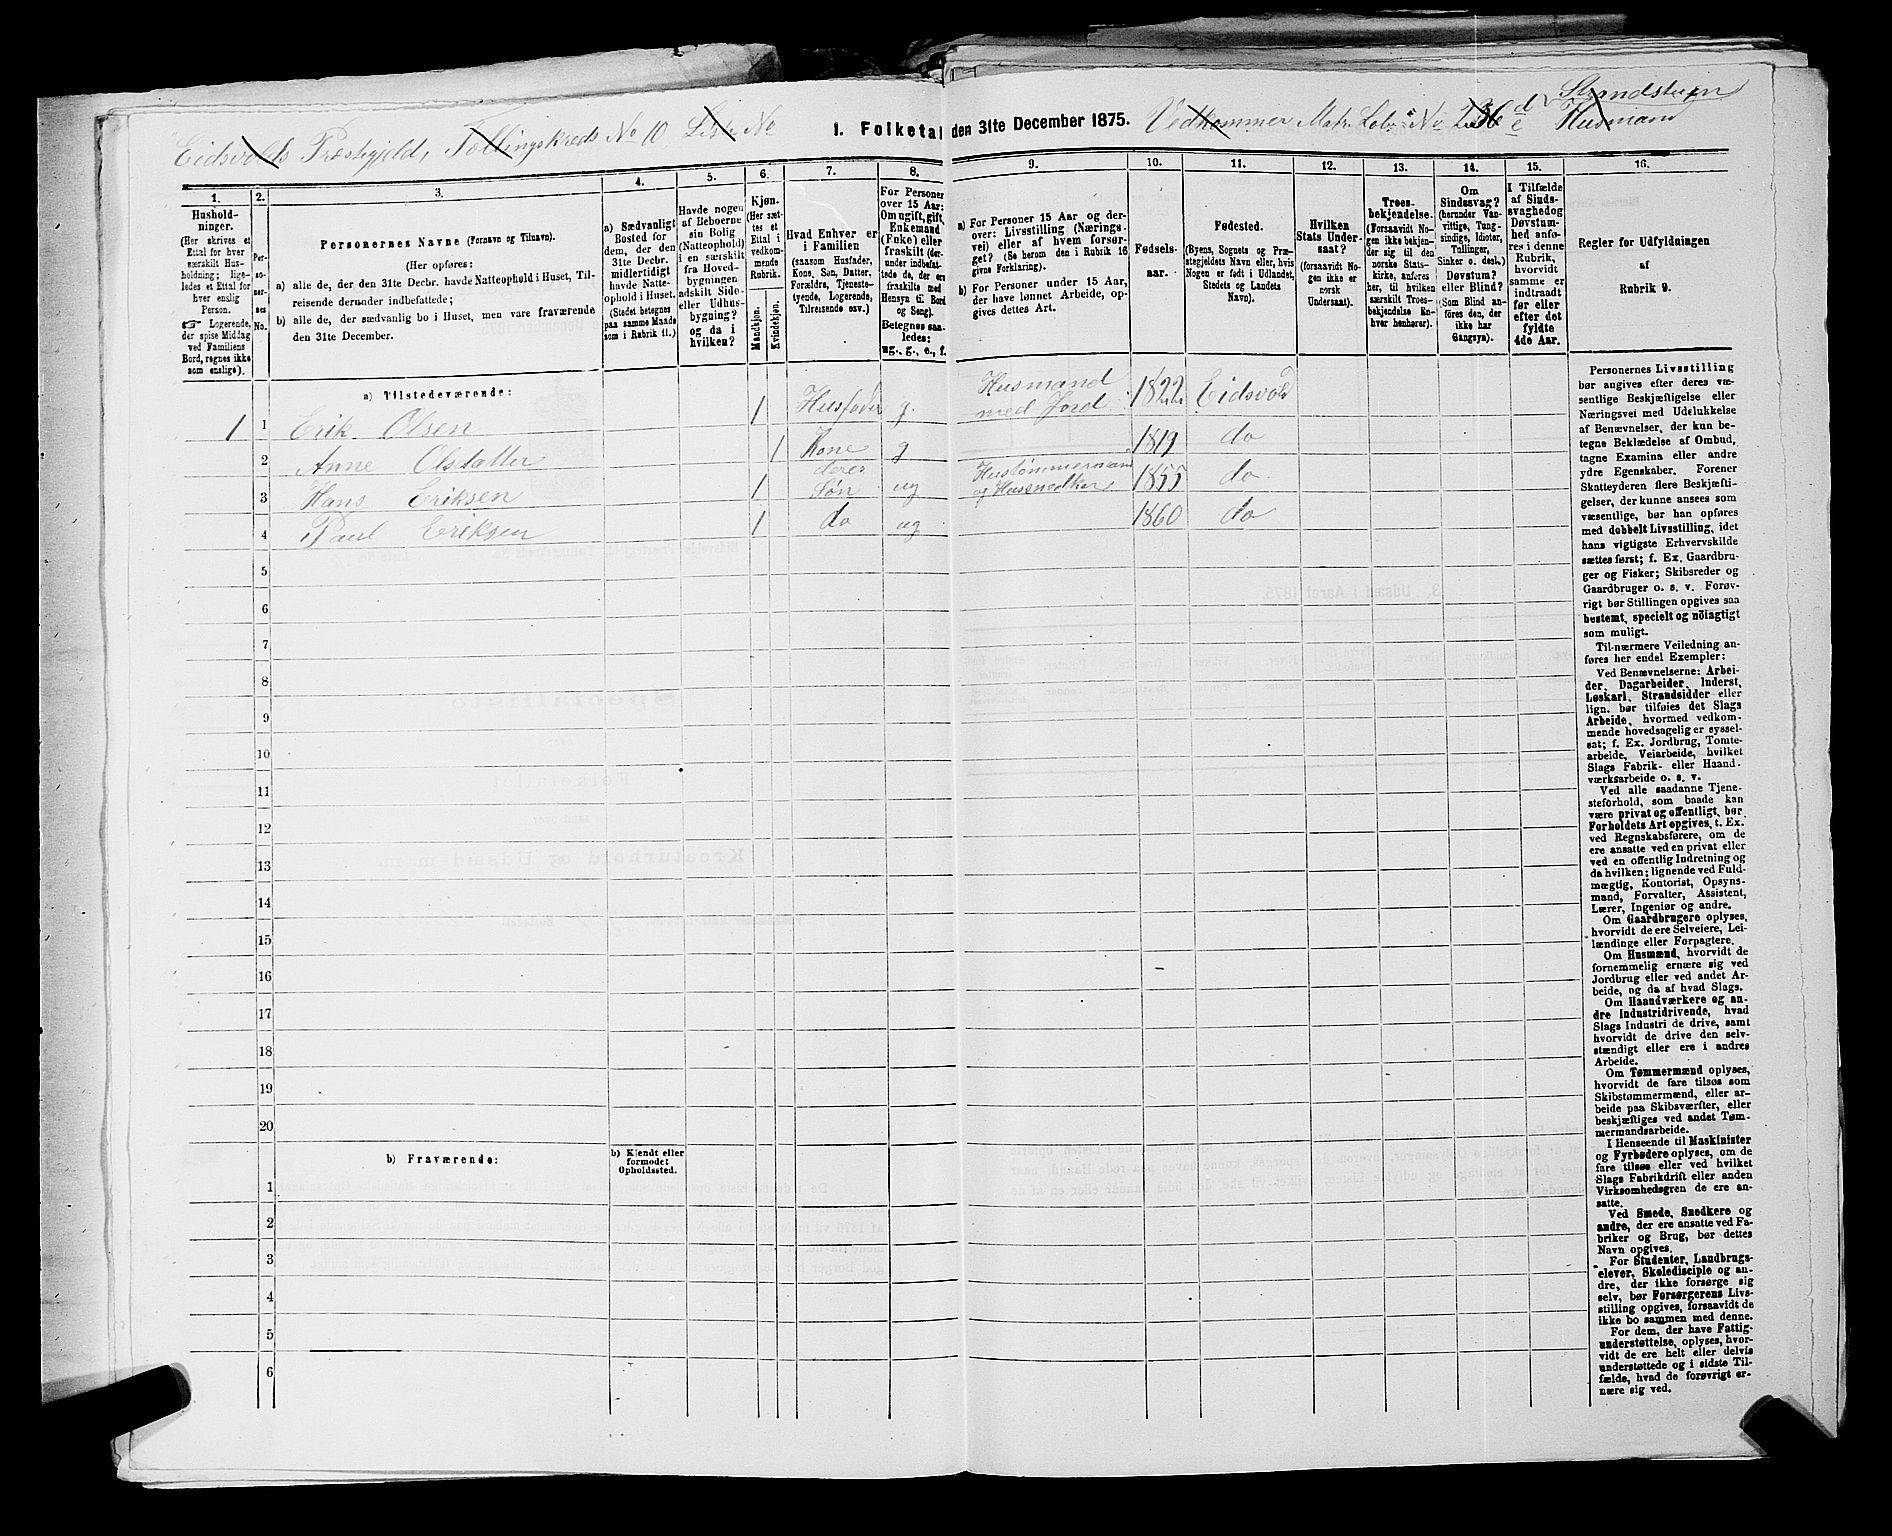 Strandstuen
Eidsvolds Præstegjeld, Tællingskreds No 10 Liste No 1. Folketal den 31te December 1875. Vedkommer Matr. Løbe No 236 d e Husmand
1. 2. 3. 4. 5. 6. 7. 8. 9. 10. 11. 12. 13. 14. 15. 16.
Hushold-
ninger.
(Her skrives et
Ettal for hver
særskilt Hus-
holdning; lige-
ledes et Ettal for
hver enslig
Person.
☞ Logerende,
der spise Middag
ved Familiens
Bord, regnes ikke
som enslige).
Per-
so-
ner-
nes
No.
Personernes Navne (Fornavn og Tilnavn).
(Her opføres:
a) alle de, der den 31te Decbr. havde Natteophold i Huset, Til-
reisende derunder indbefattede;
b) alle de, der sædvanlig bo i Huset, men vare fraværende
den 31te December.
a) Sædvanligt
Bosted for
dem, der den
31te Decbr.
midlertidigt
havde Natte-
ophold i Huset.
(Stedet betegnes
paa samme Maade
som i Rubrik 11.)
Havde nogen
af Beboerne
sin Bolig
(Natteophold)
i en særskilt
fra Hoved-
bygningen
adskilt Side-
eller Udhus-
bygning?
og da i
hvilken?
Kjøn.
(Her sæt-
tes et
Ettal i
vedkom-
mende
Rubrik.
Mandkjøn.
Kvindekjøn.
Hvad Enhver er
i Familien
(saasom Husfader,
Kone, Søn, Datter,
Forældre, Tjeneste-
tyende, Logerende,
Tilreisende osv.)
For Personer
over 15 Aar:
Om ugift, gift,
Enkemand
(Enke) eller
fraskilt (der-
under indbefat-
tede de, der ere
fraskilte med
Hensyn til Bord
og Seng).
Betegnes saa-
ledes:
ug., g., e., f.
a) For Personer 15 Aar og der-
over: Livsstilling (Nærings-
vei) eller af hvem forsør-
get? (Se herom den i Rubrik 16
givne Forklaring).
b) For Personer under 15 Aar,
der have lønnet Arbeide, op-
gives dettes Art.
Fødsels-
aar.
Fødested.
(Byens, Sognets og Præ-
stegjeldets Navn eller, hvis
Nogen er født i Udlandet,
Stedets og Landets
Navn).
Hvilken
Stats Under-
saat?
(forsaavidt No-
gen ikke er
norsk
Undersaat).
Troes-
bekjendelse.
(Forsaavidt No-
gen ikke bekjen-
der sig til den
norske Stats-
kirke, anføres
her, til hvilken
særskilt Troes-
bekjendelse En-
hver henhører).
Om
Sindssvag?
(herunder Van-
vittige, Tung-
sindige, Idioter,
Tullinger,
Sinker o. desl.)
Døvstum?
eller Blind?
(Som Blind an-
føres den, der
ikke har
Gangsyn).
I Tilfælde
af Sinds-
svaghed og
Døvstum-
hed anfø-
res i denne
Rubrik,
hvorvidt
samme er
indtraadt
før eller
efter det
fyldte
4de Aar.
Regler for Udfyldningen
af
Rubrik 9.
a) Tilstedeværende:
1 1 Erik Olsen 1 Husfader g. Husmand med Jord 1822 Eidsvold
2 Anne Olsdatter 1 Kone g 1819 do
3 Hans Eriksen 1 deres Søn ug Hustømmermand og Hussnedker 1855 do
4 Paul Eriksen 1 do ug 1860 do
5
6
7
8
9
10
11
12
13
14
15
16
17
18
19
20
b) Fraværende:
b) Kjendt eller
formodet
Opholdssted.
1
2
3
4
5
6
Personernes Livsstilling
bør angives efter deres væ-
sentlige Beskjæftigelse eller
Næringsvei med Udelukkelse
af Benævnelser, der kun be-
tegne Beklædelse af Ombud,
tagne Examina eller andre
ydre Egenskaber. Forener
Skatteyderen flere Beskjæfti-
gelser, der kunne ansees som
væsentlige, bør han opføres
med dobbelt Livsstilling, idet
hans vigtigste Erhvervskilde
sættes først; f. Ex. Gaardbru-
ger og Fisker; Skibsreder og
Gaardbruger o. s. v. Forøv-
rigt bør Stillingen opgives saa
bestemt, specielt og nöiagtigt
som muligt.
Til nærmere Veiledning an-
føres her endel Exempler:
Ved Benævnelserne: Arbei-
der, Dagarbeider, Inderst,
Løskarl, Strandsidder eller
lign. bør tilføies det Slags
Arbeide, hvormed vedkom-
mende hovedsagelig er syssel-
sat; f. Ex. Jordbrug, Tomte-
arbeide, Veiarbeide, hvilket
Slags Fabrik- eller Haand-
værksarbeide o. s. v.
Ved alle saadanne Tjene-
steforhold, som baade kan
være privat og offentligt, bør
Forholdets Art opgives, t. Ex.
ved Regnskabsførere, om de
ere ansatte ved en privat eller
ved en offentlig Indretning og
da hvilken; lignende ved Fuld-
mægtig, Kontorist, Opsyns-
mand, Forvalter, Assistent,
Lærer, Ingeniør og andre.
Om Gaardbrugere oplyses,
hvorvidt de ere Selveiere, Lei-
lændinge eller Forpagtere.
Om Husmænd, hvorvidt de
fornemmelig ernære sig ved
Jordbrug eller ved andet Ar-
beide, og da af hvad Slags.
Om Haandværkere og an-
dre Industridrivende, hvad
Slags Industri de drive, samt
hvorvidt de drive den selv-
stændigt eller ere i andres
Arbeide.
Om Tømmermænd oplyses,
hvorvidt de fare tilsøs som
Skibstømmermænd, eller ar-
beide paa Skibsværfter, eller
beskjæftiges ved andet Tøm-
mermandsarbeide.
I Henseende til Maskinister
og Fyrbødere oplyses, om de
fare tilsøs eller ved hvilket
Slags Fabrikdrift eller anden
Virksomhedsgren de ere an-
satte.
Ved Smede, Snedkere og
andre, der ere ansatte ved Fa-
briker og Brug, bør dettes
Navn opgives.
For Studenter, Landbrugs-
elever, Skoledisciple og an-
dre, der ikke forsørge sig
selv, bør Forsørgerens Livs-
stilling opgives, forsaavidt de
ikke bo sammen med denne.
For dem, der have Fattig-
understøttelse, oplyses, hvor-
vidt de ere helt eller delvis
understøttede og i sidste Til-
fælde, hvad de forøvrigt er-
nære sig ved.